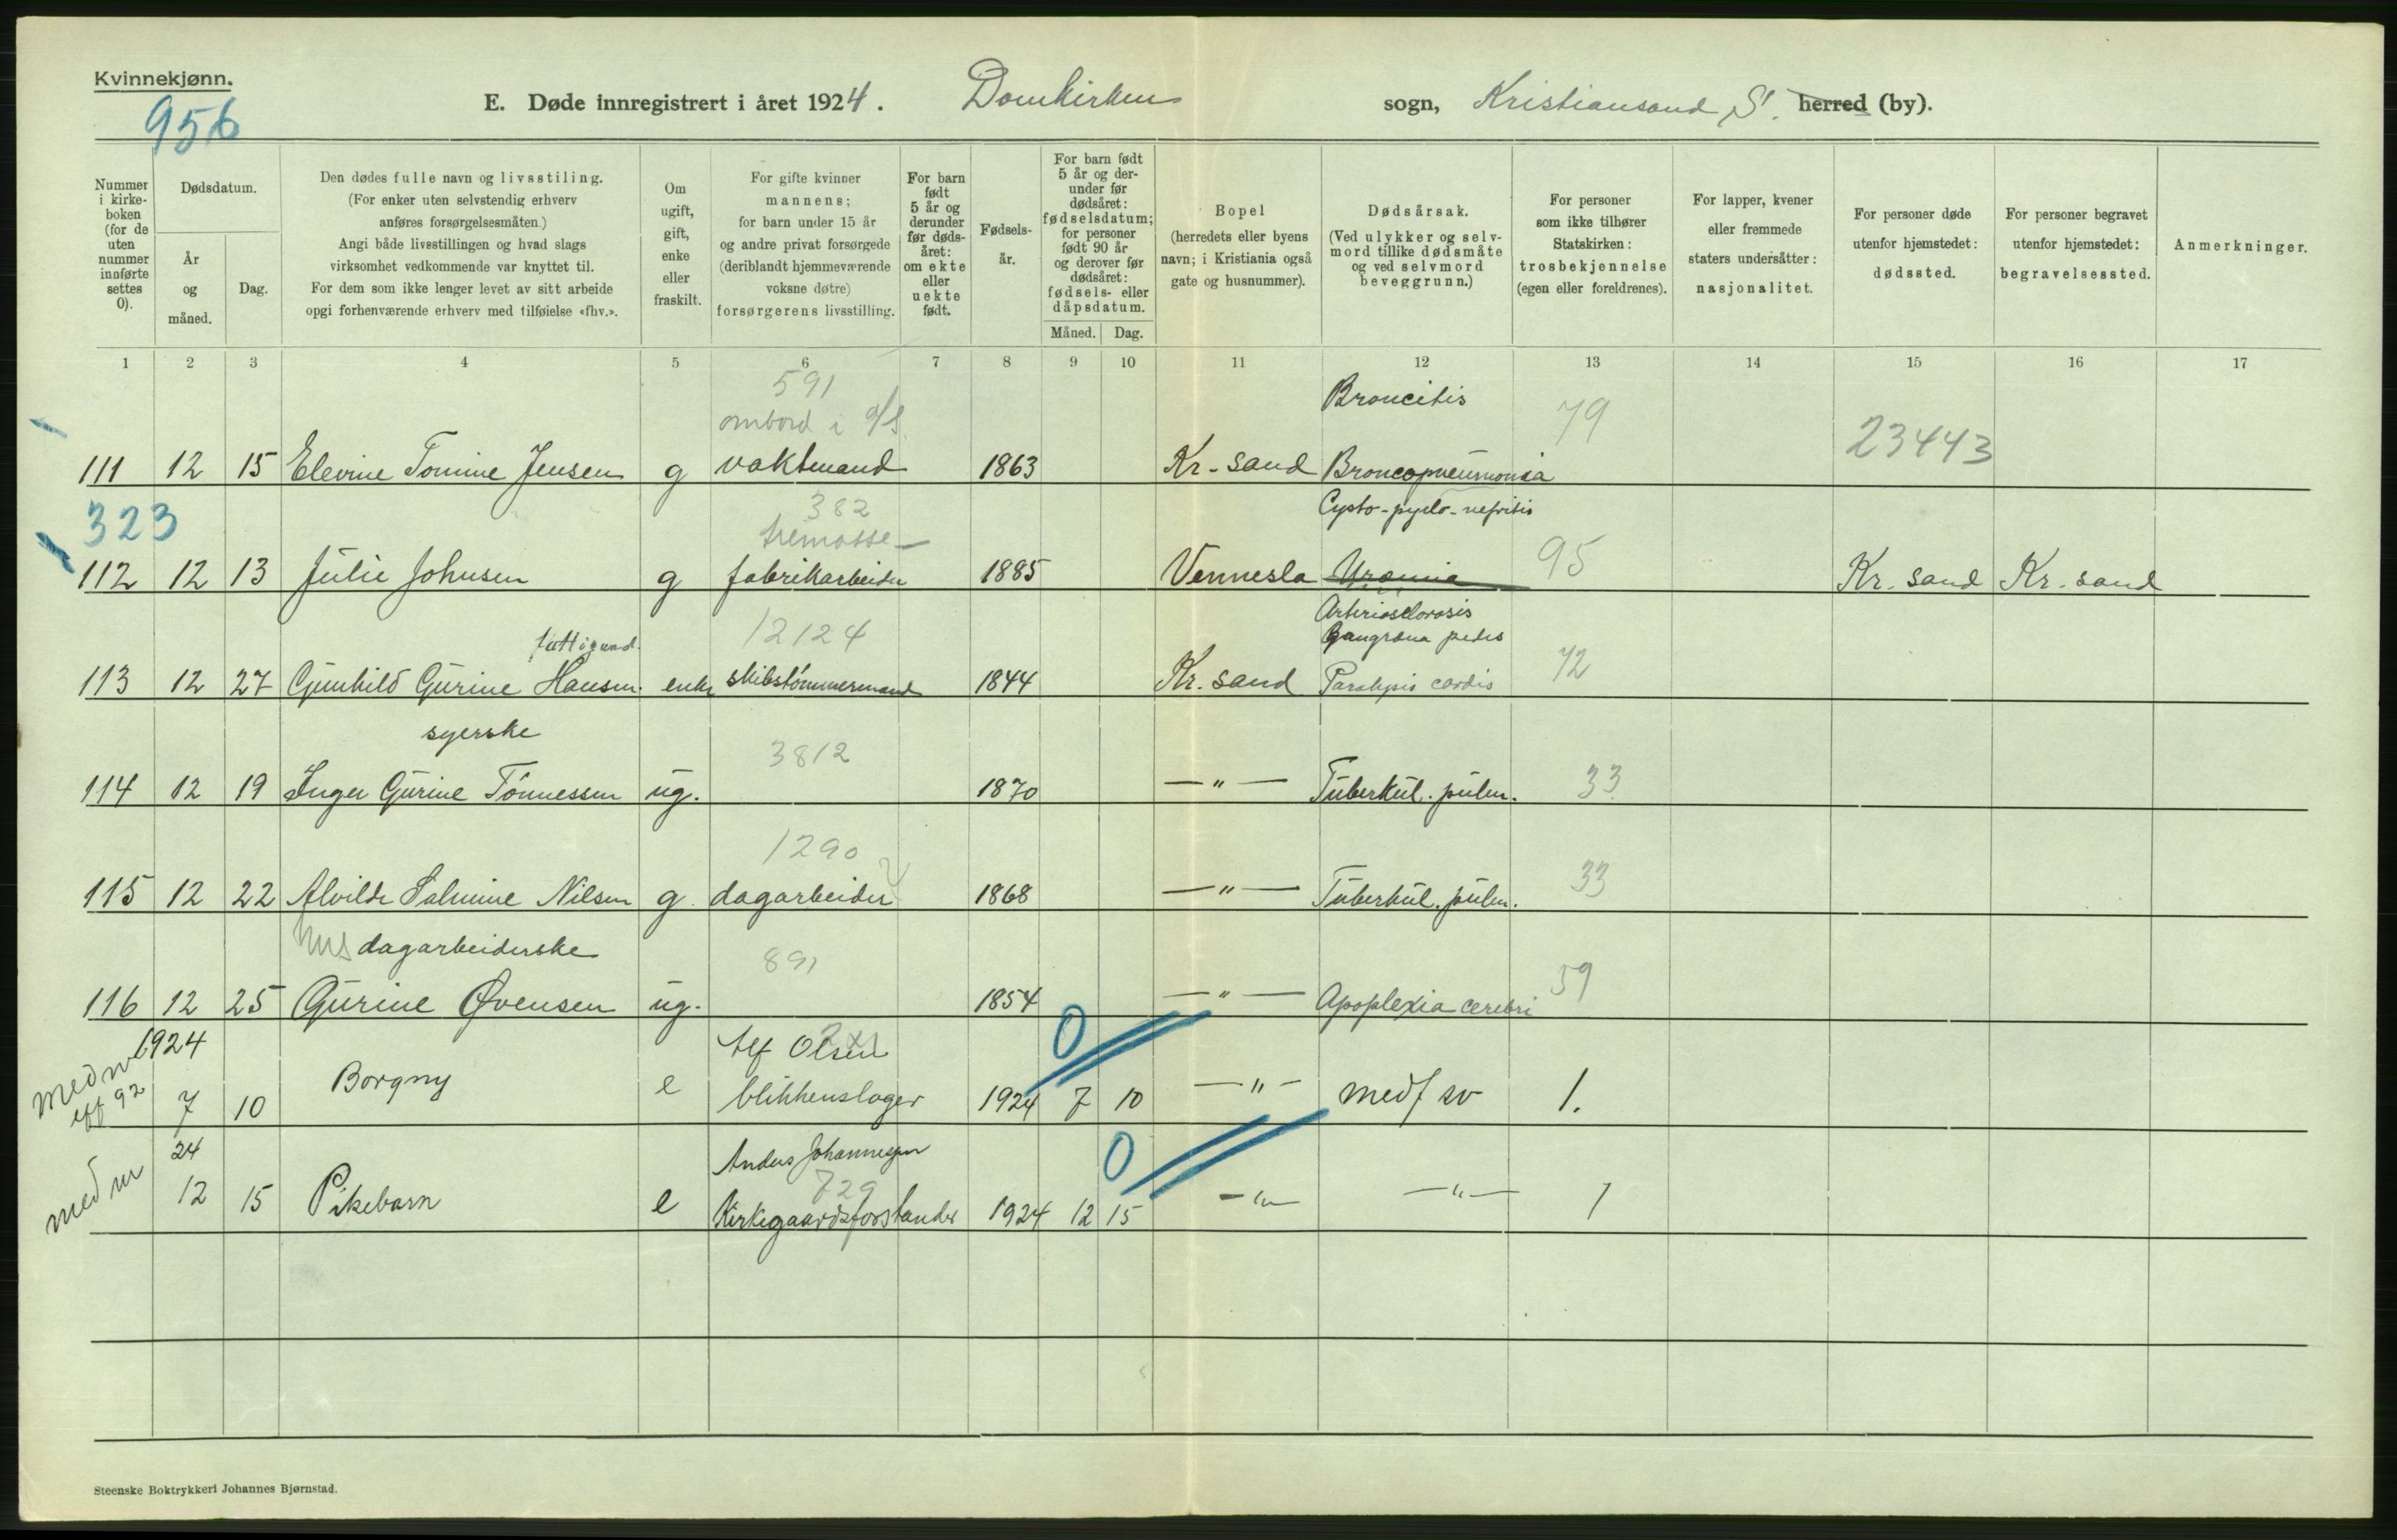 Kvinnekjønn.
956
E. Døde innregistrert i året 1924. Domkirken sogn, Kristiansand S. herred (by).
Nummer i kirkeboken (for de uten nummer innførte settes 0).
Dødsdatum.
År og måned.
Dag.
Den dødes fulle navn og livsstiling.
(For enker uten selvstendig erhverv
anføres forsørgelsesmåten.)
Angi både livsstillingen og hvad slags
virksomhet vedkommende var knyttet til.
For dem som ikke lenger levet av sitt arbeide
opgi forhenværende erhverv med tilføielse «fhv.».
Om ugift, gift, enke eller fraskilt.
For gifte kvinner
mannens;
for barn under 15 år
og andre privat forsørgede
(deriblandt hjemmeværende
voksne døtre)
forsørgerens livsstilling.
For barn født 5 år og derunder før dødsåret: om ekte eller uekte født.
Fødselsår.
For barn født 5 år og derunder før dødsåret: fødselsdatum; for personer født 90 år og derover før dødsåret: fødsels- eller dåpsdatum.
Måned. Dag.
Bopel
(herredets eller byens
navn; i Kristiania også
gate og husnummer).
Dødsårsak.
(Ved ulykker og selvmord tillike dødsmåte og ved selvmord beveggrunn.)
For personer
som ikke tilhører
Statskirken:
trosbekjennelse
(egen eller foreldrenes).
For lapper, kvener
eller fremmede
staters undersåtter:
nasjonalitet.
For personer døde
utenfor hjemstedet:
dødssted.
For personer begravet
utenfor hjemstedet:
begravelsessted.
Anmerkninger.
1 2 3 4 5 6 7 8 9 10 11 12 13 14 15 16 17
591
ombord i d/s Broncitis 79 23443
111 12 15 Elevine Tomine Jensen g vaktmand 1863 Kr-sand Broncopneumonia
323 382 Cysto-pyelo-nefritis
tremasse-
112 12 13 Julie Johnsen g fabrikarbeider 1885 Vennesla Uræmia 95 Kr. sand Kr. sand
12124 Arteriosclorosis
fattigund. Gangræna pedis
113 12 27 Gunhild Gurine Hansen enke skibstømmermand 1844 Kr. sand Paralysis cordis 72
syerske 3812
114 12 19 Inger Gurine Tønnessen ug. 1870 —"— Tuberkul. pulm. 33
1290
115 12 22 Alvilde Salmine Nilsen g. dagarbeider 1868 —"— Tuberkul. pulm. 33
hus dagarbeiderske 891
116 12 25 Gurine Øvensen ug. 1854 —"— Apoplexia cerebri 59
1924 Alf Olsen 0
7 10 Borgny e blikkenslager 1924 7 10 —"— medf sv 1.
24 Anders Johannessen 0
med nr 12 15 Pikebarn e 729 Kirkegaardsforstander 1924 12 15 —"— —"— 1
Steenske Boktrykkeri Johannes Bjørnstad.